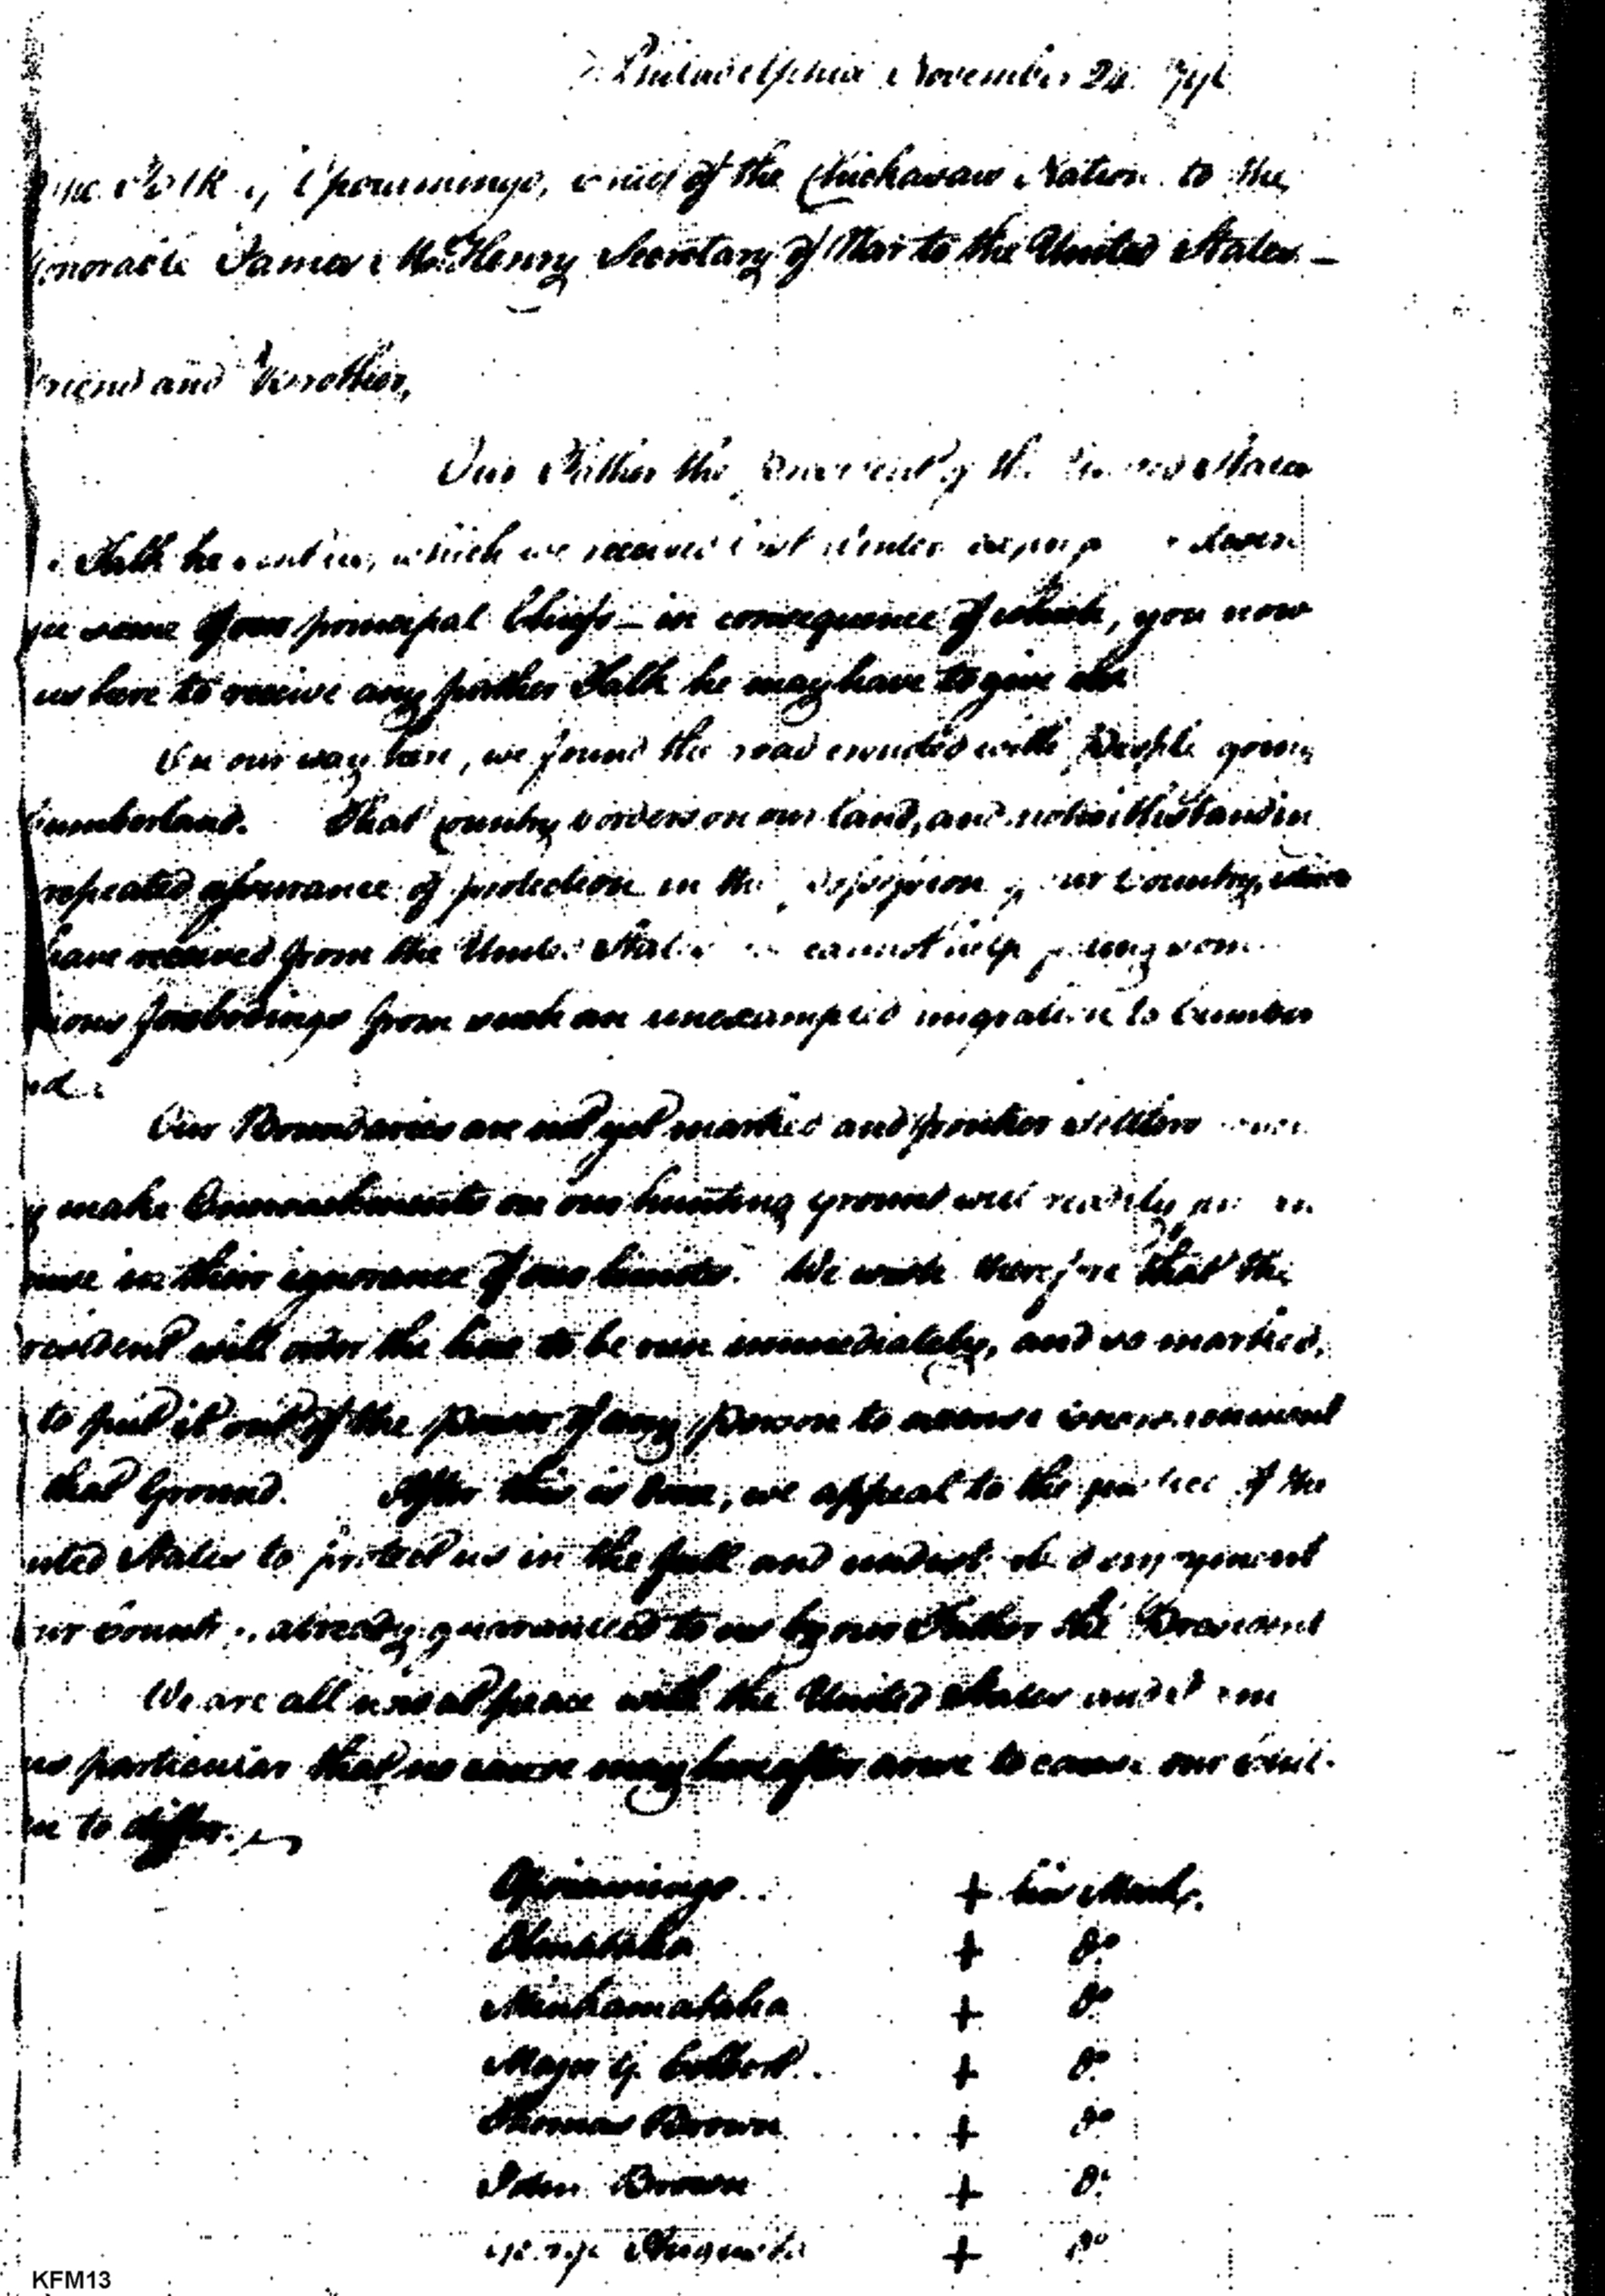 Philadelphia November 24. 1796
The Talk of Opoiamingo, chief of the Chickasaw Nation to the
Honorable James McHenry Secretary of War to the United States —
Friend and Brother,
Our Father the President of the United States
Talk he sent us, which we received last Winter
see some of our principal Chiefs — in consequence of which, you now
us here to receive any further Talk he may have to give us
On our way here, we found the road crowded with People going
Cumberland. That Country borders on our land, and notwithstandin
repeated assurance of protection in the possession of our Country, which
have received from the United States we cannot help
forebodings from such an unexampled migration to Cumber
nd.
Our Boundaries are not yet marked and frontier settlers
make Encroachments on our hunting ground will readily
in their ignorance of our limits. We wish therefore that the
resident will order the line to be run immediately, and so marked,
to put it out of the power of any person to
that Ground. After this is done, we appeal to the justice of the
nited States to protect us in the full and undisturbed enjoyment
ur Country already guaranteed to us by our Father the President
We are all now at peace with the United States and
particular that no cause may hereafter arise to cause our chil-
to differ.
Opoiamingo + his Mark.
+ Do
+ Do
Major G. Colbert + Do
Thomas Brown + Do
John Brown + Do
+ Do
KFM13